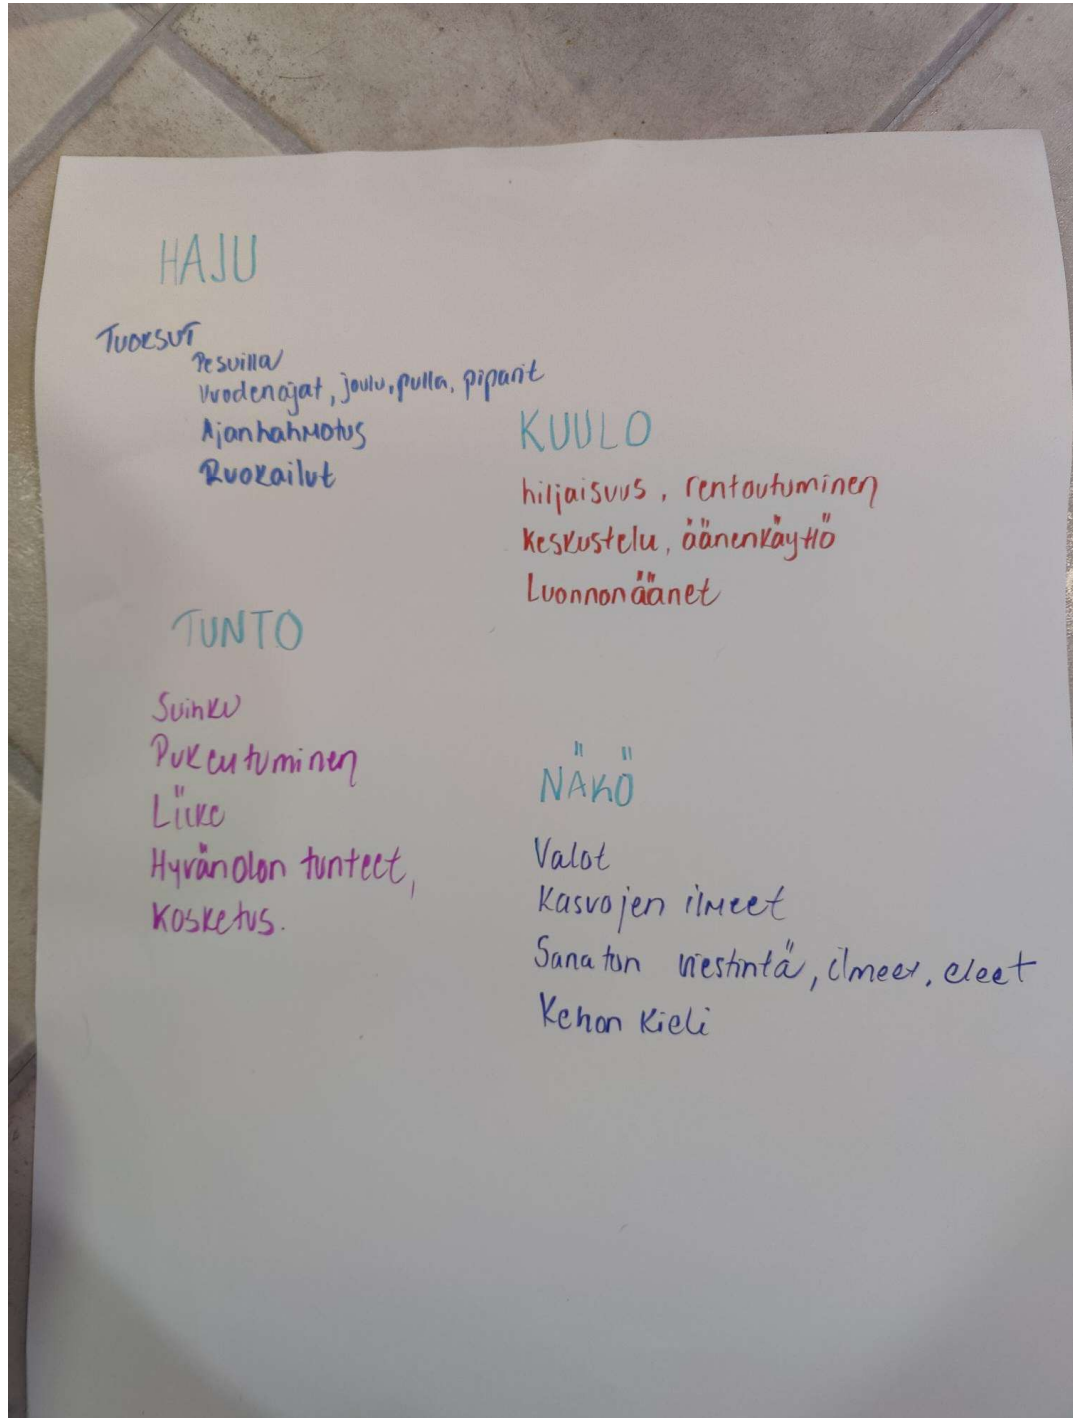 HAJU
TUOKSUT
Pesuilla
Vuodenajat, joulu, pulla, piparit
Ajanhahmotus
Ruokailut
KUULO
hiljaisuus, rentoutuminen
keskustelu, äänenkäyttö
Luonnonäänet
TUNTO
Suihku
Pukeutuminen
Liike
Hyvänolon tunteet,
kosketus.
NÄKÖ
Valot
Kasvojen ilmeet
Sanaton viestintä, ilmeet, eleet
Kehon kieli